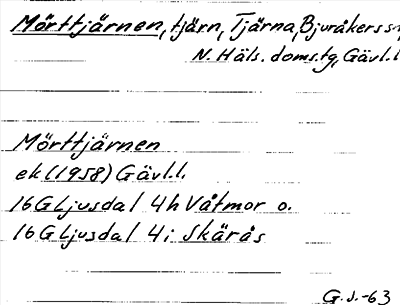 Mörttjärnen, tjärn, Tjärna, Bjuråkers sn,
N. Häls. doms.tg, Gävl.l
Mörttjärnen
ek (1958) Gävl.l.
16G Ljusdal 4h Våtmor o.
16G Ljusdal 4i Skärås
G.J.-63